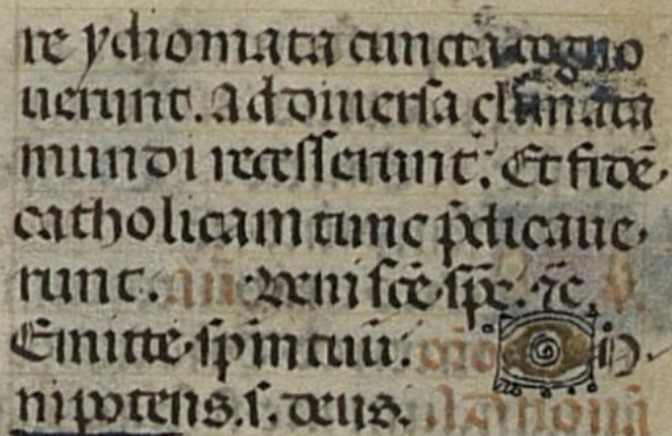 re ydiomata cuncta cogno
uerunt. Ad diuersa climata
mundi recesserunt. Et fidē
catholicam tunc p̄dicaue
runt. añ. Veni scē spc̄. ⁊c. V.
Emitte spm̄ tuū. oio O
nipotens. s. deus. Ad nonā